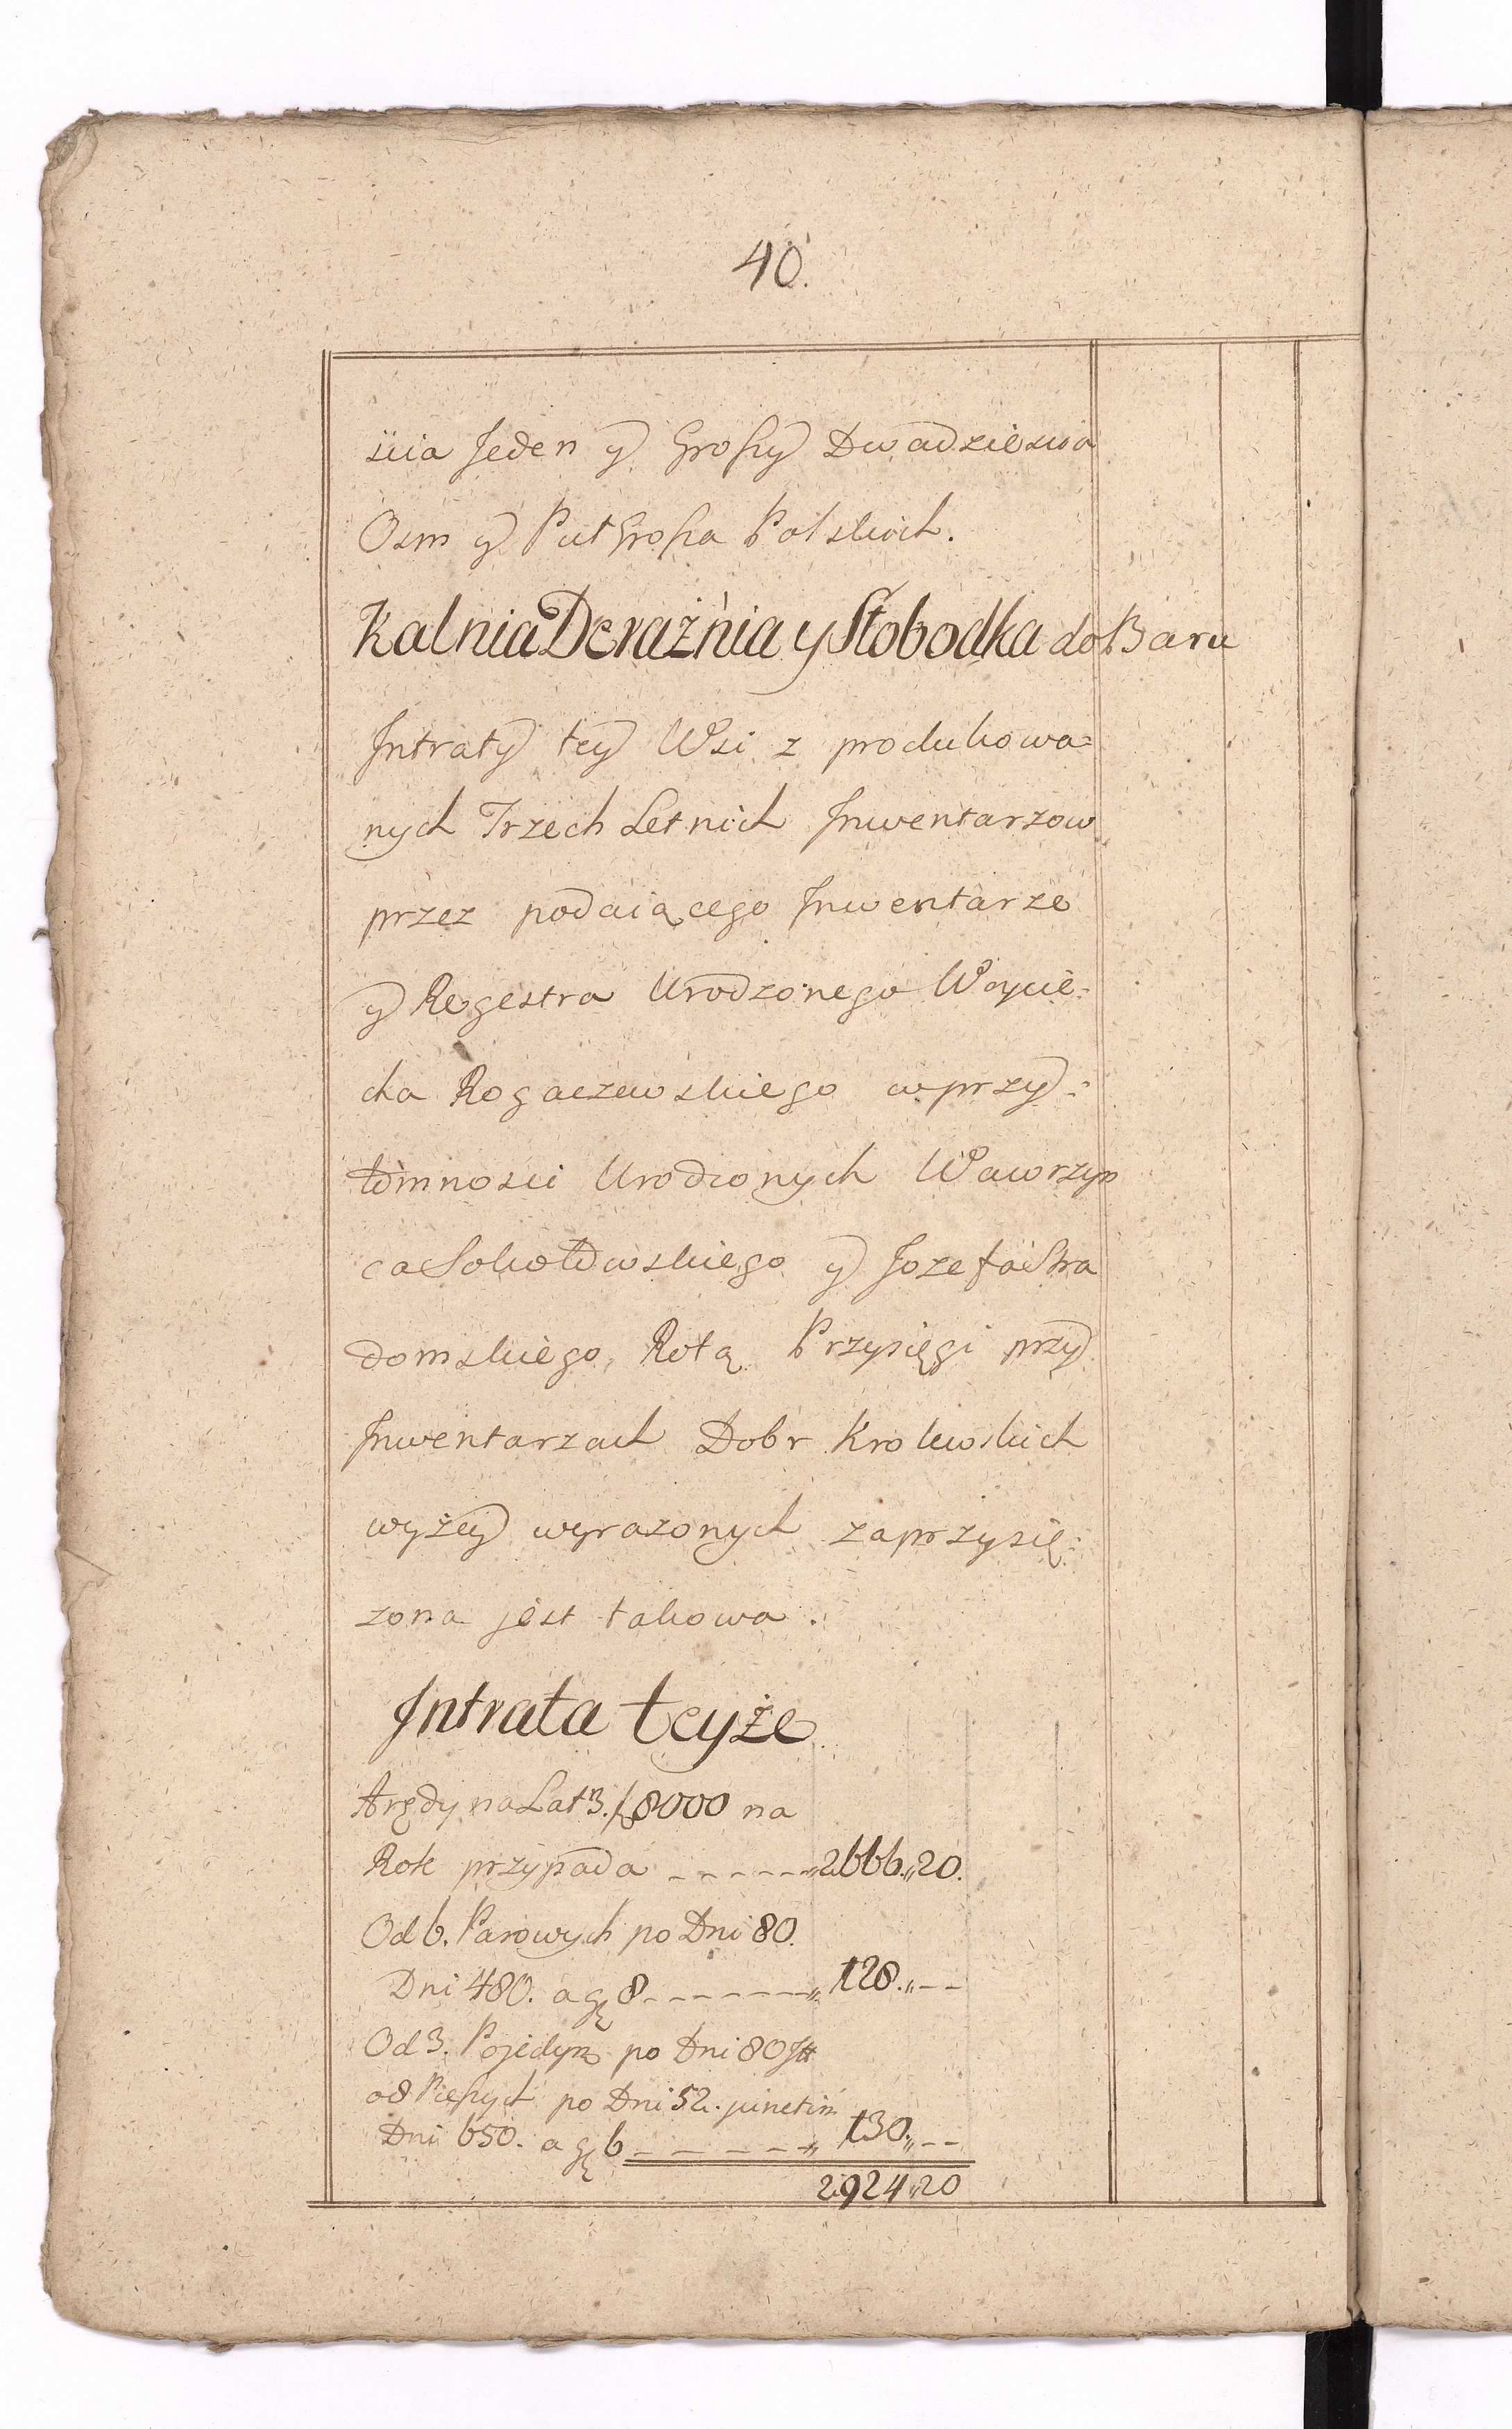 40.
scia Jeden y Groszy Dwadziescia
Osm y Puł Grosza Polskich.
Kalnia Derażnia y Słobodka do Baru
Intraty tey Wsi z produkowa=
nych Trzech Letnich Inwentarzow
przez podaiącego Inwentarze
y Regestra Urodzonego Woycie=
cha Rogaczewskiego w przy=
tomnosci Urodzonych Wawrzyn
ca Sokołowskiego y Jozefa Stra
domskiego, Rotą Przysięgi przy
Inwentarzach Dobr Krolewskich
wyżey wyrazonych zaprzysię=
zona jest takowa.
Intrata teyże
Arędy na Lat 3. f 8000 na
Rok przypada - - - - - - 2666.,,20.
Od 6. Parowych po Dni 80.
Dni 480. a gł 8 - - - - - - - 128.,,--
Od 3. Pojedyn po Dni 80 Jtt
od Pieszych po Dni 52. junctim
Dni 650. a gł 6 - - - - - - 130.,,--
2924,,20